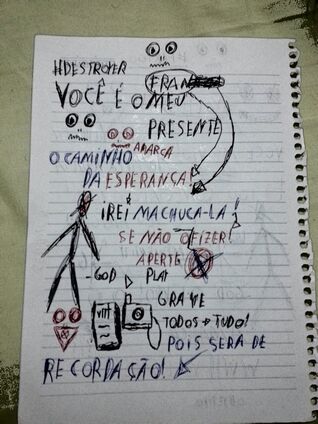 #DESTROYER
FRAN
VOCÊ É O MEU
PRESENTE
A MARCA
O CAMINHO
DA ESPERANÇA!
IREI MACHUCA-LA!
SE NÃO O FIZER!
APERTE
-GOD PLAY
GRAVE
TODOS → TUDO!
POIS SERA DE
RECORDAÇÃO!